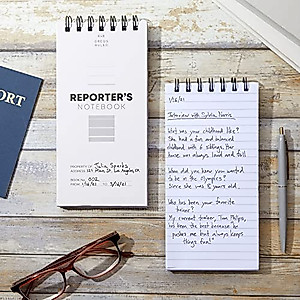 PORT
AIR
GREGG
RULED
REPORTER'S
NOTEBOOK
PROPERTY OF Julia Sparks
ADDRESS 123 Main St. Los Angeles, CA
BOOK NO. 002
FROM 1/16/21 TO
1/16/21
Interview with Sylvia Harris
What was your childhood like?
She had a fun and balanced
childhood, with 6 siblings. Her
house was always loud and full.
When did you know you wanted
to be in the Olympics?
Since she was 8 years old.
Who has been your favorite
trainer?
My current trainer, Tom Philips,
has been the best because he
pushes me but always keeps
things fun!"